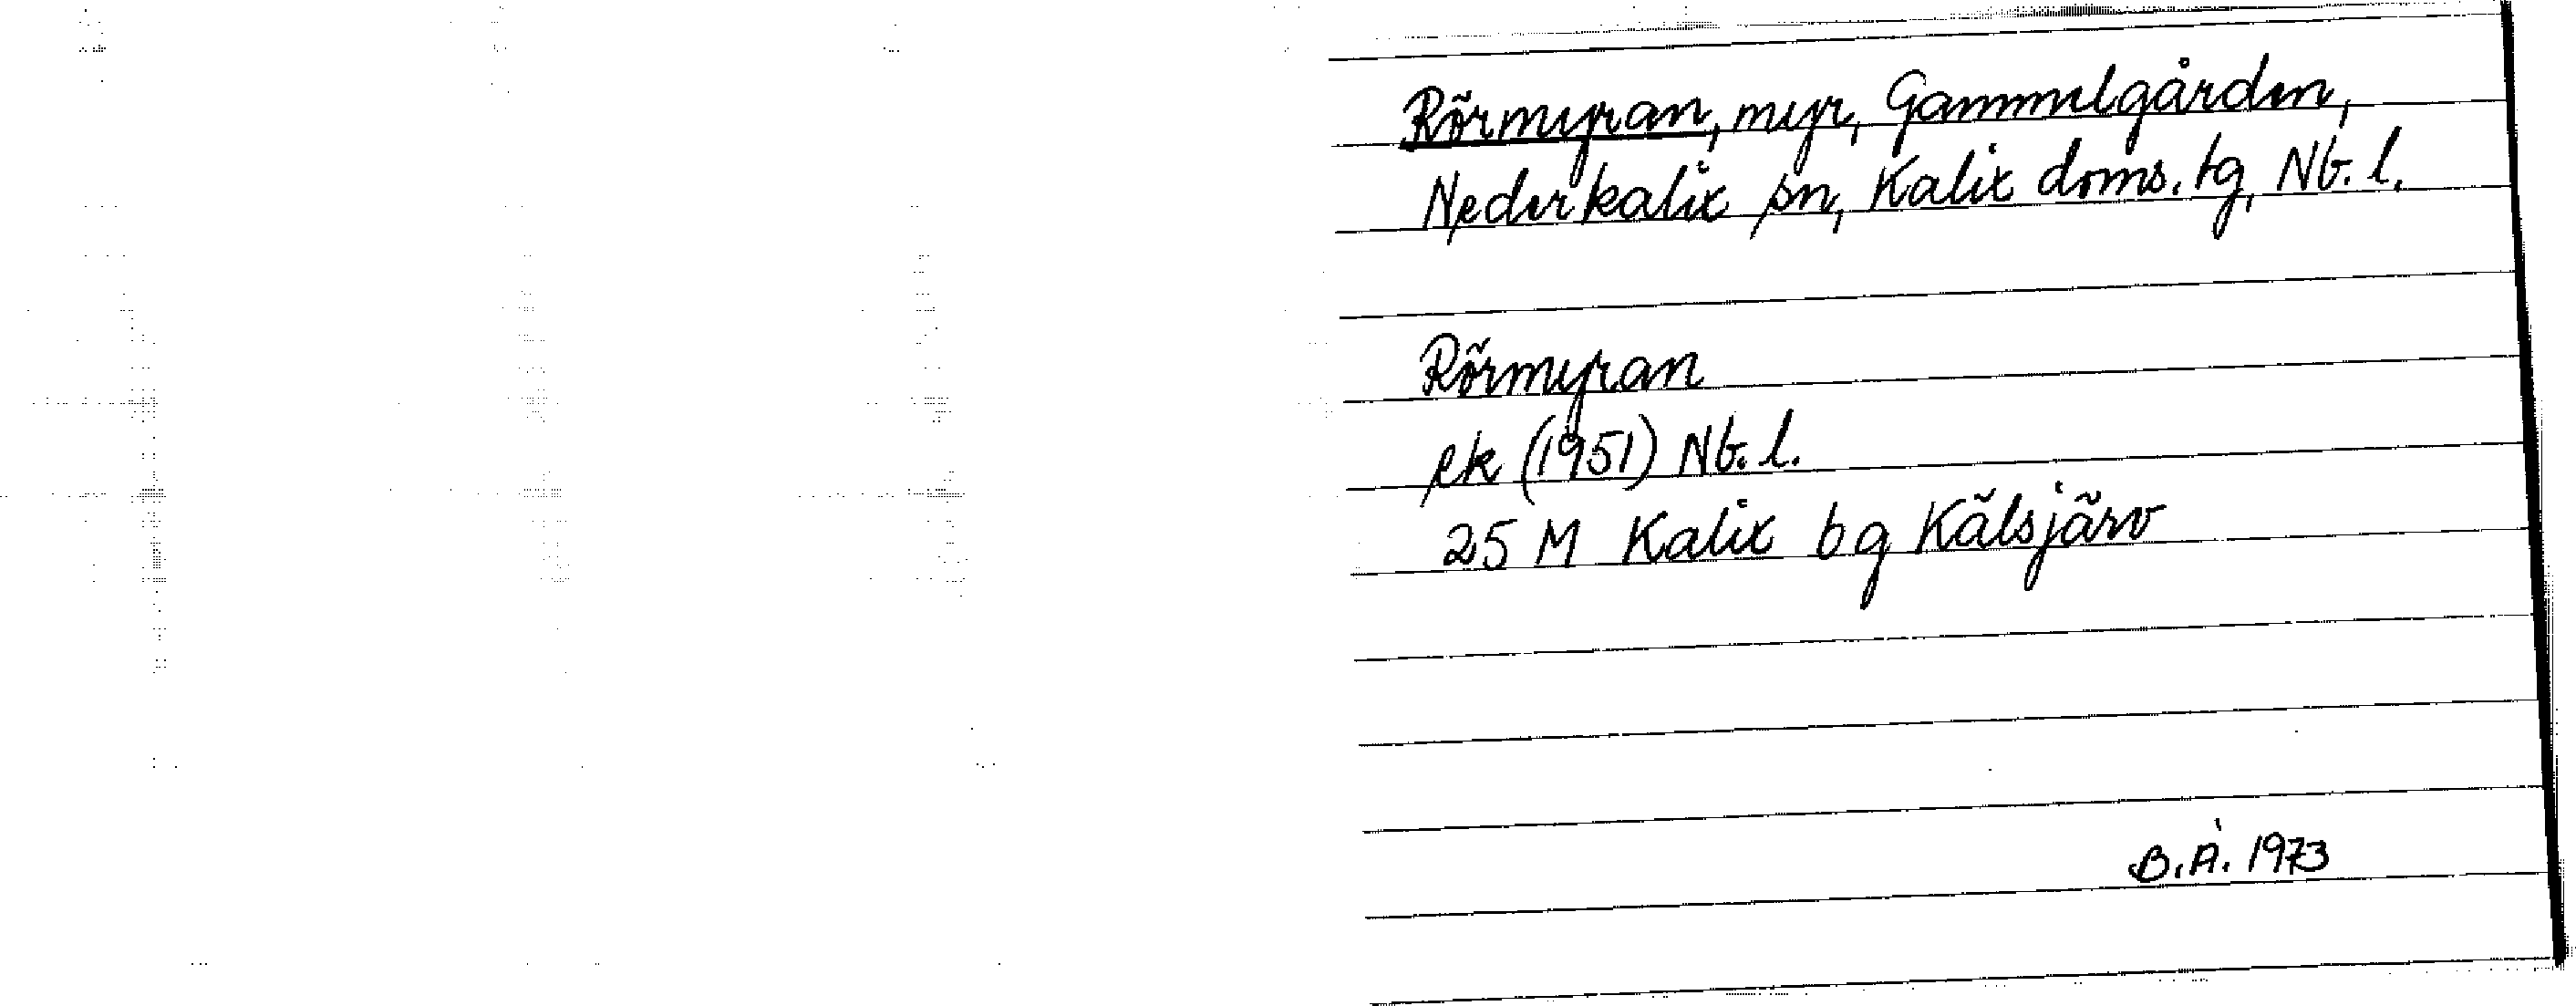 Rörmyran, myr, Gammelgården,
Nederkalix sn, Kalix doms. tg, Nb. l.
Rörmyran
ek (1951) Nb. l.
25 M Kalix bg Kälsjärv
B.Å. 1973